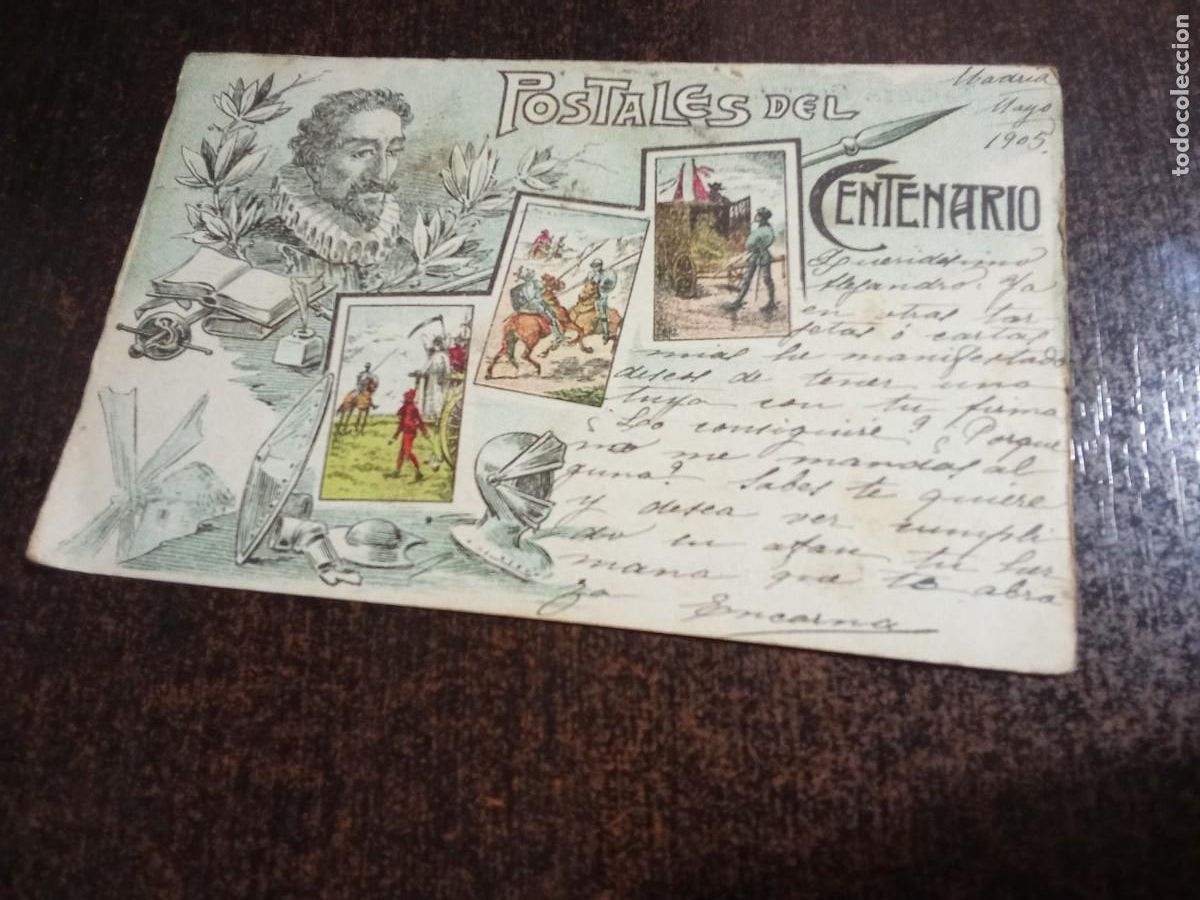 POSTALES DEL
CENTENARIO
Madrid
Mayo
1905.
Queridisimo
Alejandro: Ya
en otras tar
jetas ó cartas
mias he manifestado
deseos de tener una
tuya con tu firma
¿Lo conseguire? ¿Porque
no me mandas al
guna? Sabes te quiere
y desea ver cumpli
do su afan tu her
mana que te abra
za Encarna
todocoleccion